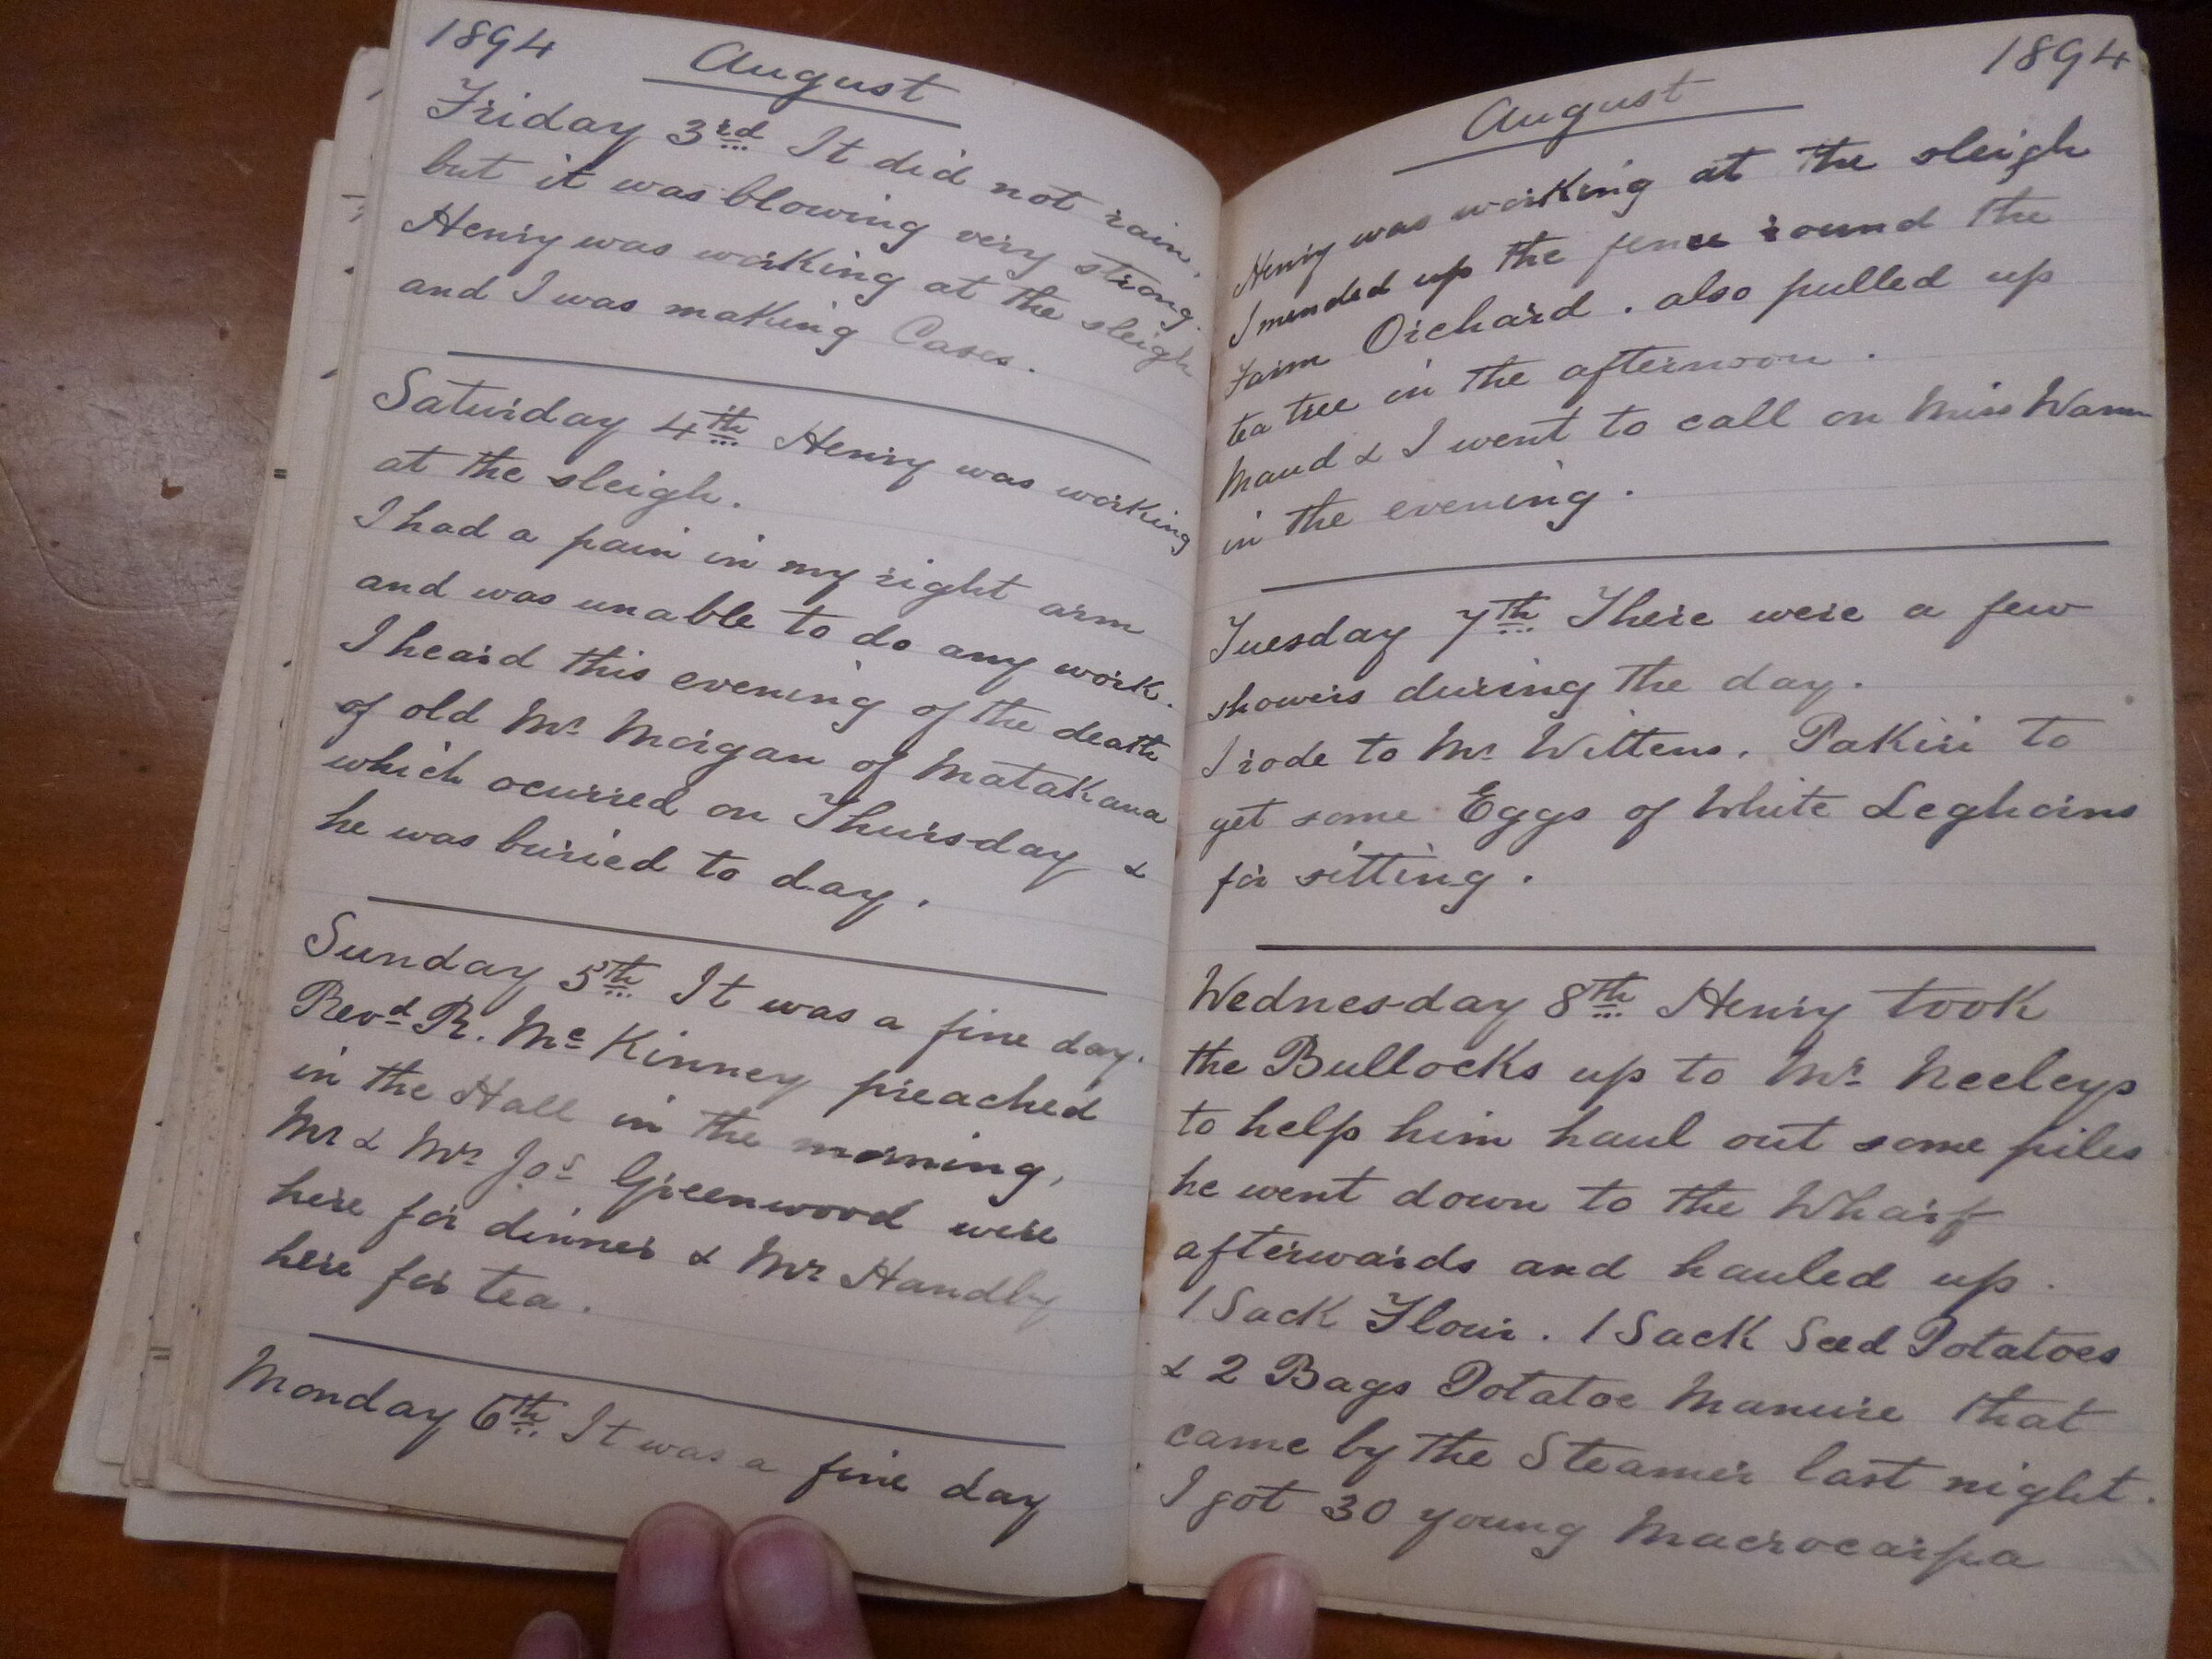 1894
August
Friday 3rd It did not rain,
but it was blowing very strong.
Henry was working at the sleigh
and I was making Cases.
Saturday 4th Henry was working
at the sleigh.
I had a pain in my right arm
and was unable to do any work.
I heard this evening of the death
of old Mr Morgan of Matakana
which ocurred on Thursday &
he was buried to day.
Sunday 5th It was a fine day.
Revd R. Mc Kinney preached
in the Hall in the morning,
Mr & Mrs Jos Greenwood were
here for dinner & Mr Handly
here for tea.
Monday 6th It was a fine day
1894
August
Henry was working at the sleigh
I mended up the fence round the
Farm Orchard. also pulled up
tea tree in the afternoon.
Maud & I went to call on Miss
in the evening.
Tuesday 7th There were a few
showers during the day.
I rode to Mr Wittens. Pakiri to
get some Eggs of White Leghorns
for sitting.
Wednesday 8th Henry took
the Bullocks up to Mr Neeleys
to help him haul out some piles
he went down to the Wharf
afterwards and hauled up.
1 Sack Flour. 1 Sack Seed Potatoes
& 2 Bags Potatoe Manure that
came by the Steamer last night.
I got 30 young Macrocarpa